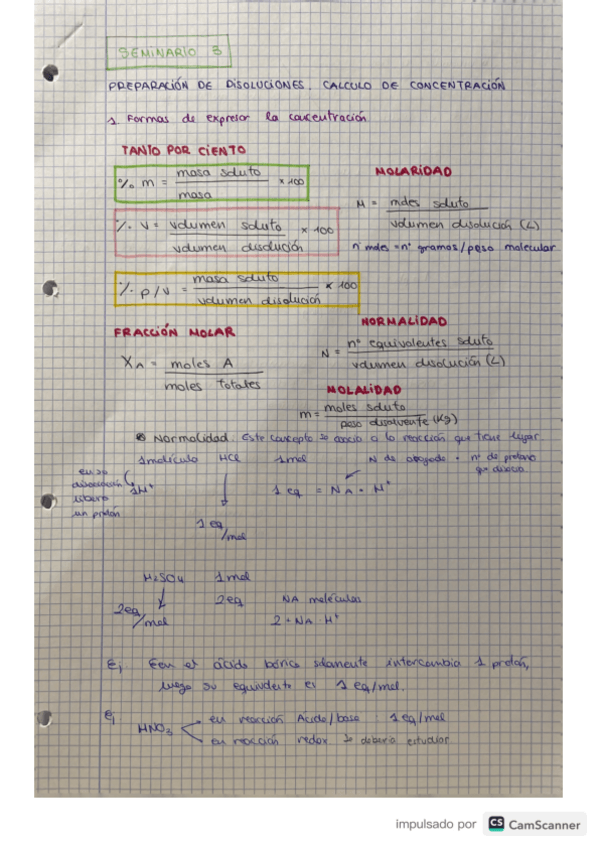 SEMINARIO 3
PREPARACIÓN DE DISOLUCIONES. CALCULO DE CONCENTRACIÓN
1. Formas de expresar la concentración
TANTO POR CIENTO
% m = masa soluto / masa × 100
% V = volumen soluto / volumen disolución × 100
% p/V = masa soluto / volumen disolución × 100
MOLARIDAD
M = moles soluto / volumen disolución (L)
nº moles = nº gramos/peso molecular
FRACCIÓN MOLAR
XA = moles A / moles totales
NORMALIDAD
N = nº equivalentes soluto / volumen disolución (L)
MOLALIDAD
m = moles soluto / peso disolvente (Kg)
Normalidad. Este concepto se asocia a la reacción que tiene lugar
1 molécula HCl 1 mol N de abogado = nº de protones
que disocia
en su
disociación
libera
un protón
1H+
1 eq = NA · H+
1 eq
/mol
H2SO4 1 mol
2eq
/mol
2 eq NA moléculas
2 · NA · H+
Ej en el ácido bórico solamente intercambia 1 protón,
luego su equivalente es 1 eq/mol.
ej HNO3
en reacción Ácido/base : 1 eq/mol
en reacción redox se debería estudiar
impulsado por CS CamScanner